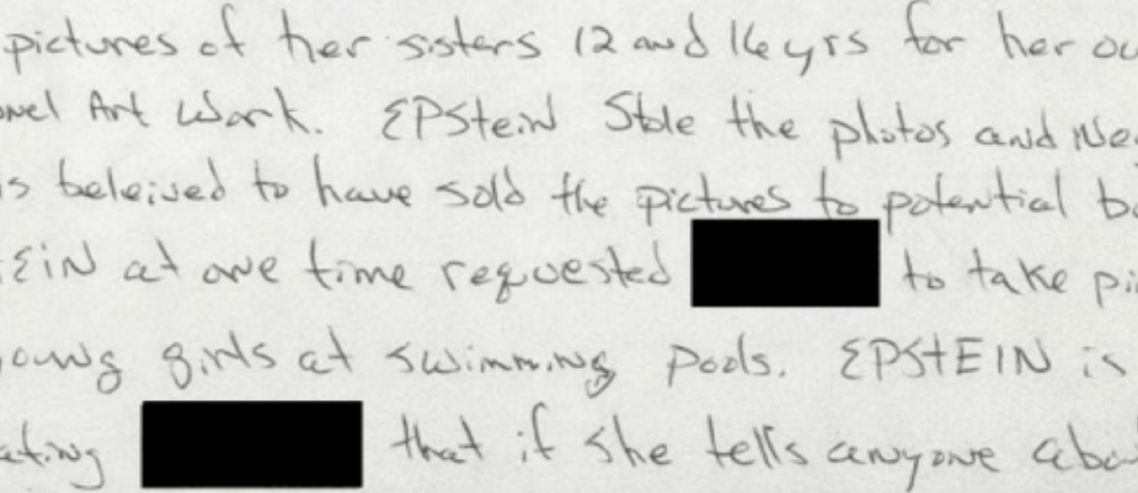 pictures of her sisters 12 and 16 yrs for her ow
onel Art Work. EPStein Stole the photos and Ne
is beleived to have sold the pictures to potential b
EIN at one time requested to take pi
oung girls at swimming pools. EPStEIN is
ating that if she tells anyone abo